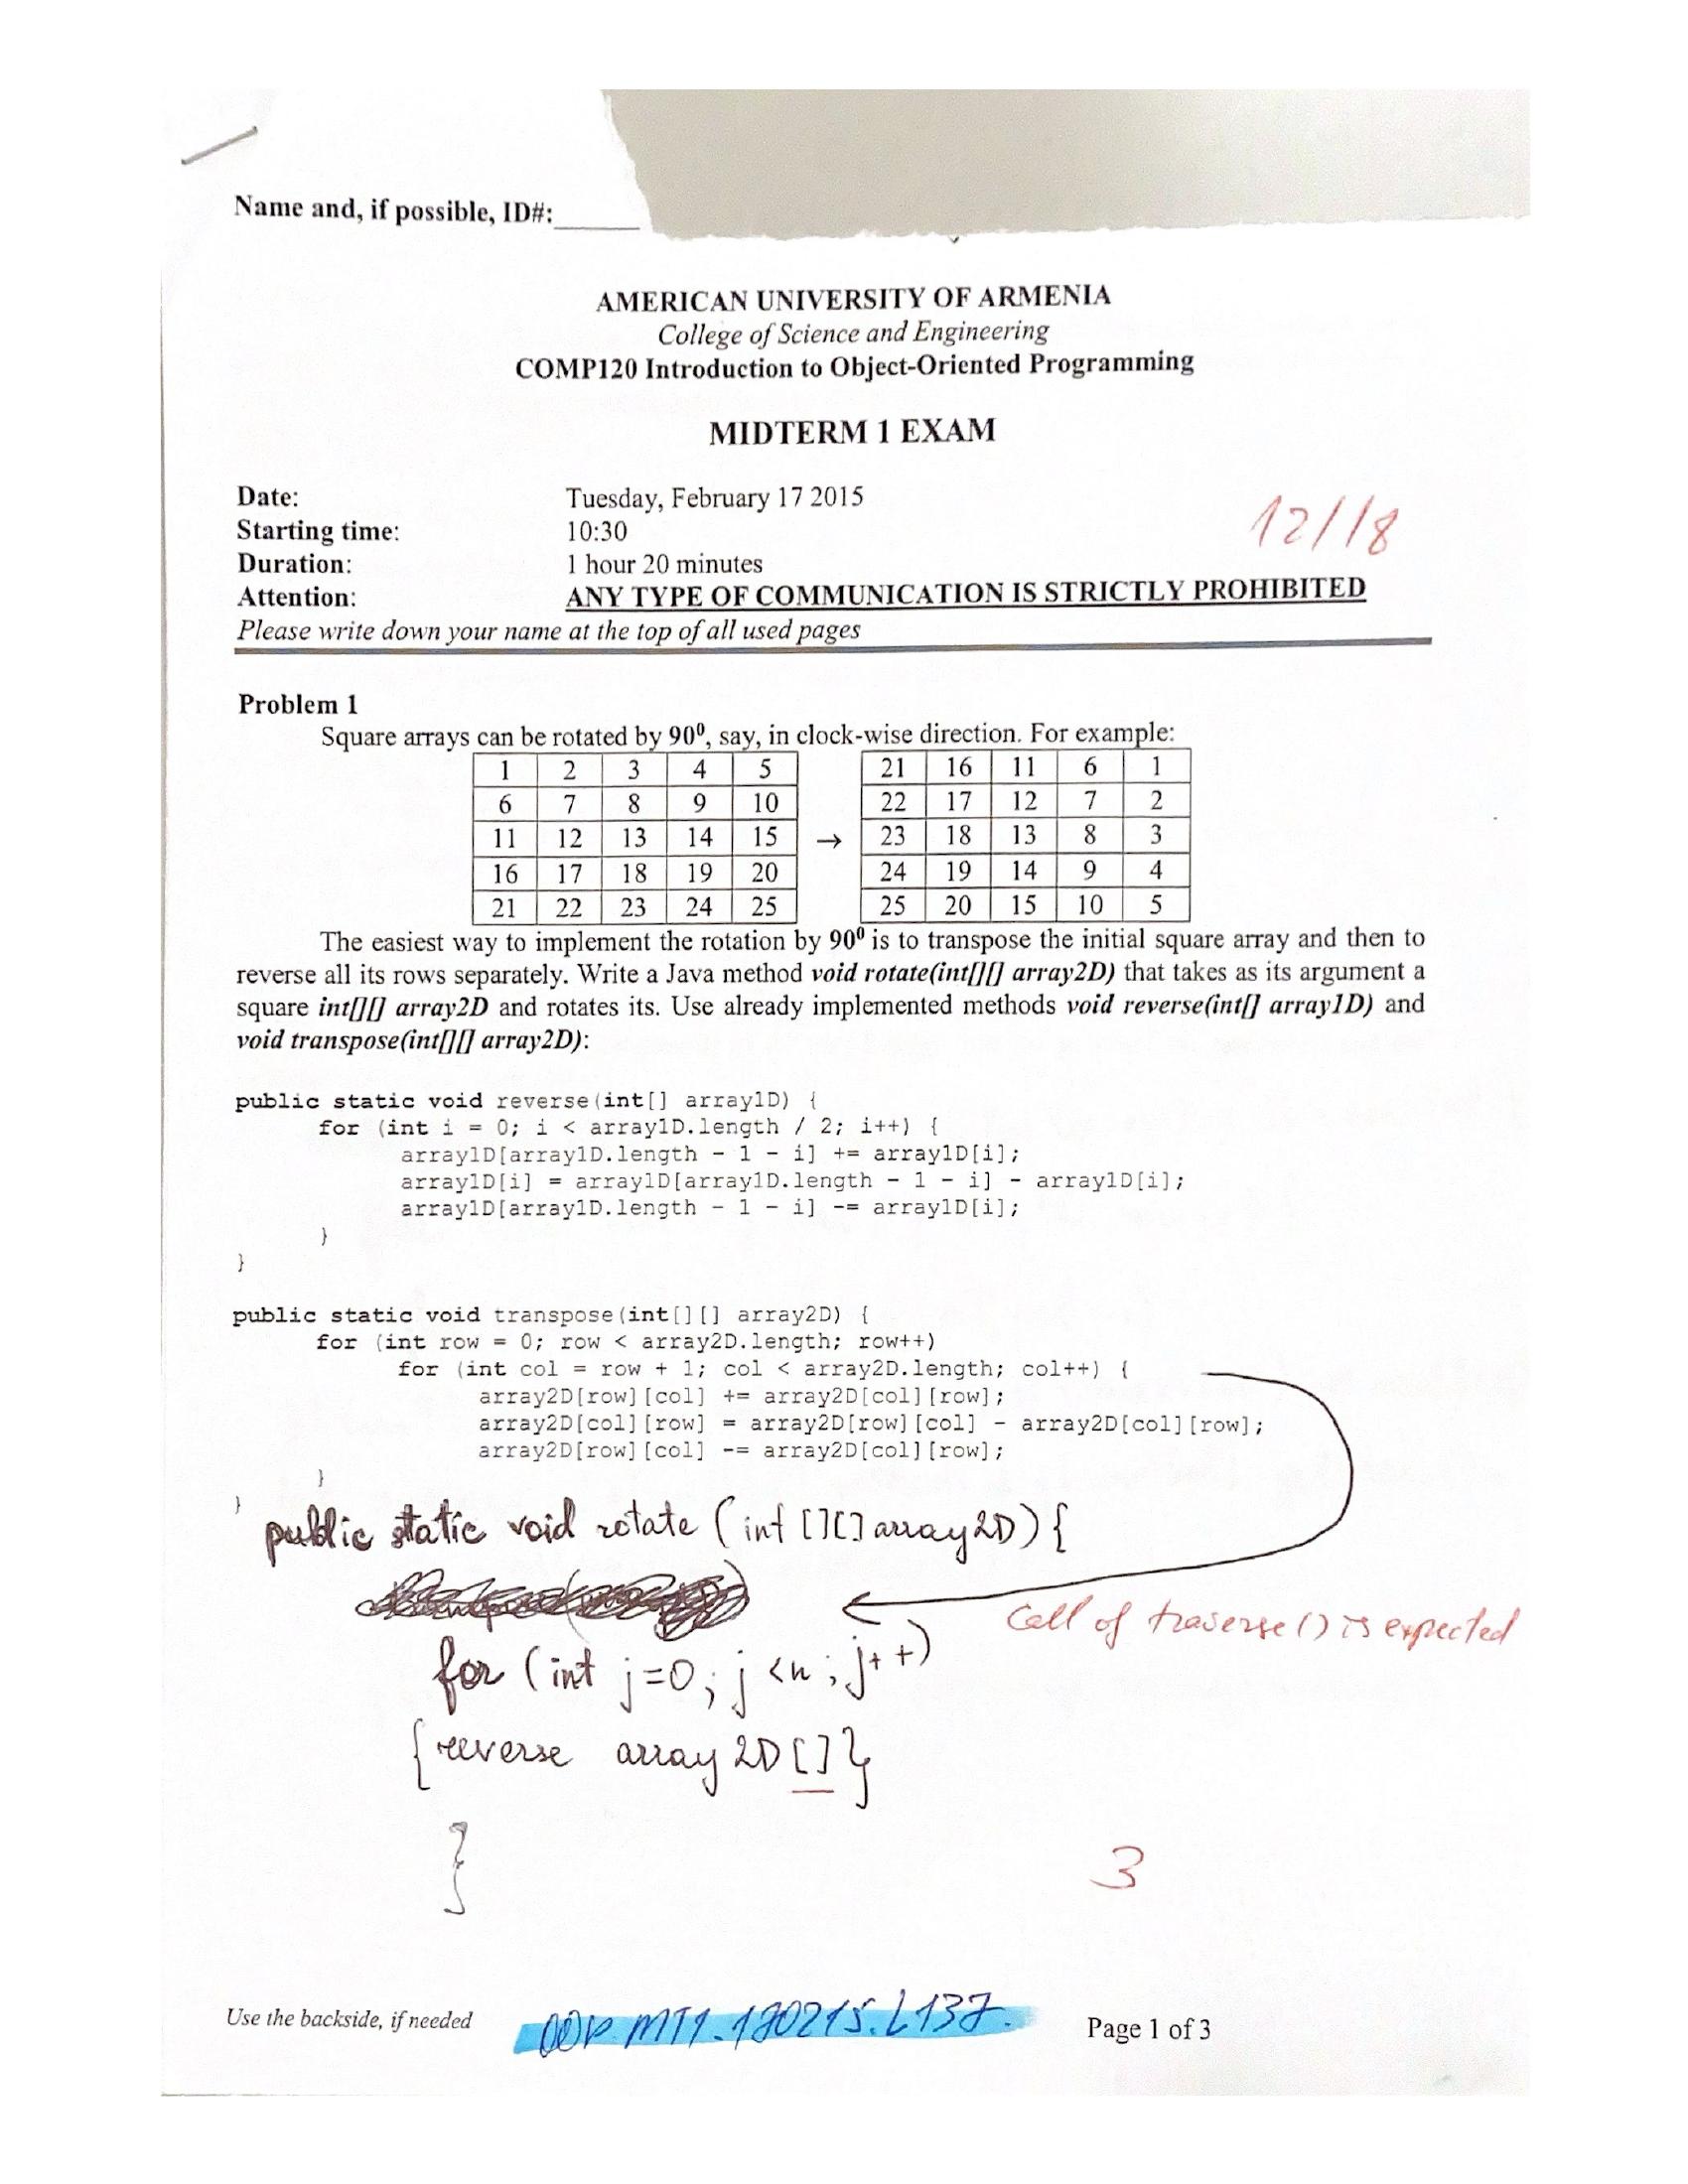 Name and, if possible, ID#:
AMERICAN UNIVERSITY OF ARMENIA
College of Science and Engineering
COMP120 Introduction to Object-Oriented Programming
MIDTERM 1 EXAM
Date: Tuesday, February 17 2015
12/18
Starting time: 10:30
Duration: 1 hour 20 minutes
Attention: ANY TYPE OF COMMUNICATION IS STRICTLY PROHIBITED
Please write down your name at the top of all used pages
Problem 1
Square arrays can be rotated by 90⁰, say, in clock-wise direction. For example:
1 2 3 4 5 21 16 11 6 1
6 7 8 9 10 22 17 12 7 2
11 12 13 14 15 → 23 18 13 8 3
16 17 18 19 20 24 19 14 9 4
21 22 23 24 25 25 20 15 10 5
The easiest way to implement the rotation by 90⁰ is to transpose the initial square array and then to
reverse all its rows separately. Write a Java method void rotate(int[][] array2D) that takes as its argument a
square int[][] array2D and rotates its. Use already implemented methods void reverse(int[] array1D) and
void transpose(int[][] array2D):
public static void reverse(int[] array1D) {
for (int i = 0; i < array1D.length / 2; i++) {
array1D[array1D.length - 1 - i] += array1D[i];
array1D[i] = array1D[array1D.length - 1 - i] - array1D[i];
array1D[array1D.length - 1 - i] -= array1D[i];
}
}
public static void transpose(int[][] array2D) {
for (int row = 0; row < array2D.length; row++)
for (int col = row + 1; col < array2D.length; col++) {
array2D[row][col] += array2D[col][row];
array2D[col][row] = array2D[row][col] - array2D[col][row];
array2D[row][col] -= array2D[col][row];
}
}
public static void rotate (int [][] array2D) {
Call of traverse() is expected
for (int j=0; j <n; j++)
{reverse array2D[]}
}
3
Use the backside, if needed
OOP.MT1.170215.L137.
Page 1 of 3